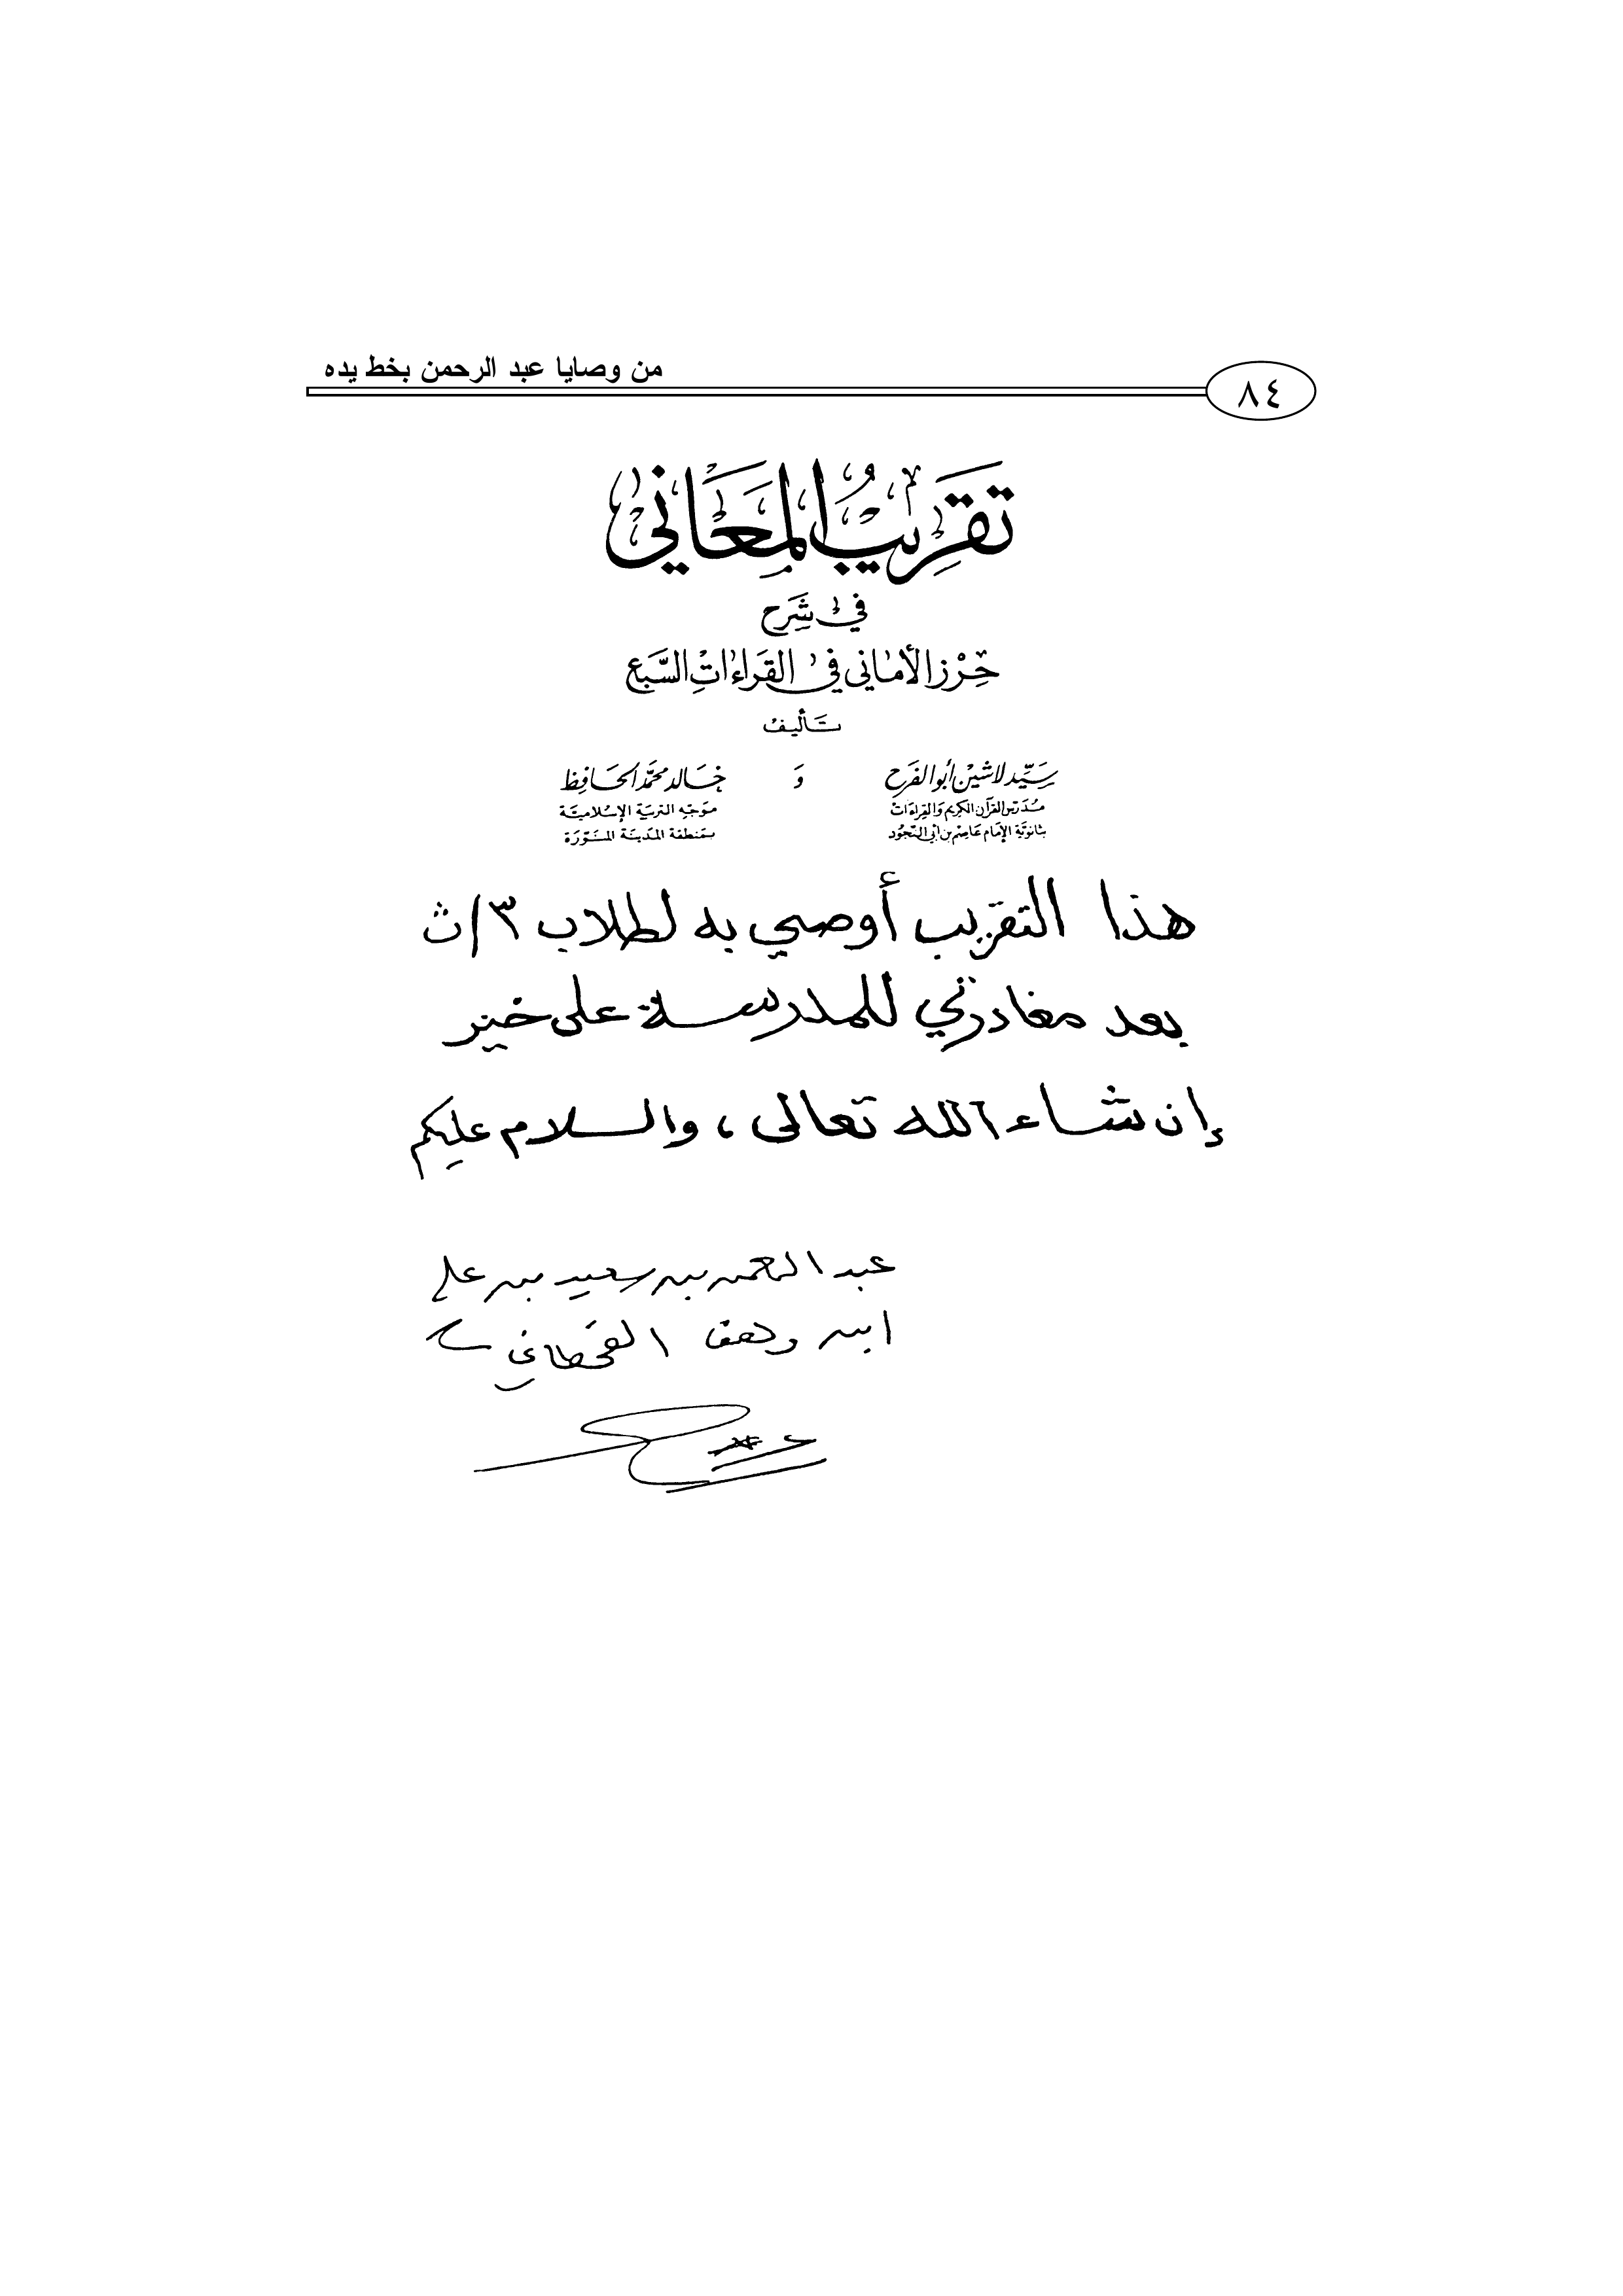 من وصايا عبد الرحمن بخط يده
٨٤
تَقْرِيبُ المَعَاني
في شَرح
حِرْز الأماني في القراءات السَّبع
تَأليف
سَيِّد لاشين أبو الفرح وَ خَالد محمَّد الحَافِظ
مُدَرّس القرآن الكريم وَالقِراءَات موَجّه التربيَة الإسْلاميَّة
بثانويَّة الإمَام عَاصِم بن أبي النَّجُود بمَنطقة المَدينَة المنَوَّرَة
هذا التقريب أوصي به لطلاب ٣/ث
بعد مغادرتي للمدرسة على خير
إن شاء الله تعالى، والسلام عليكم
عبد الرحمن بن سعيد بن علي
ابن وهف القحطاني